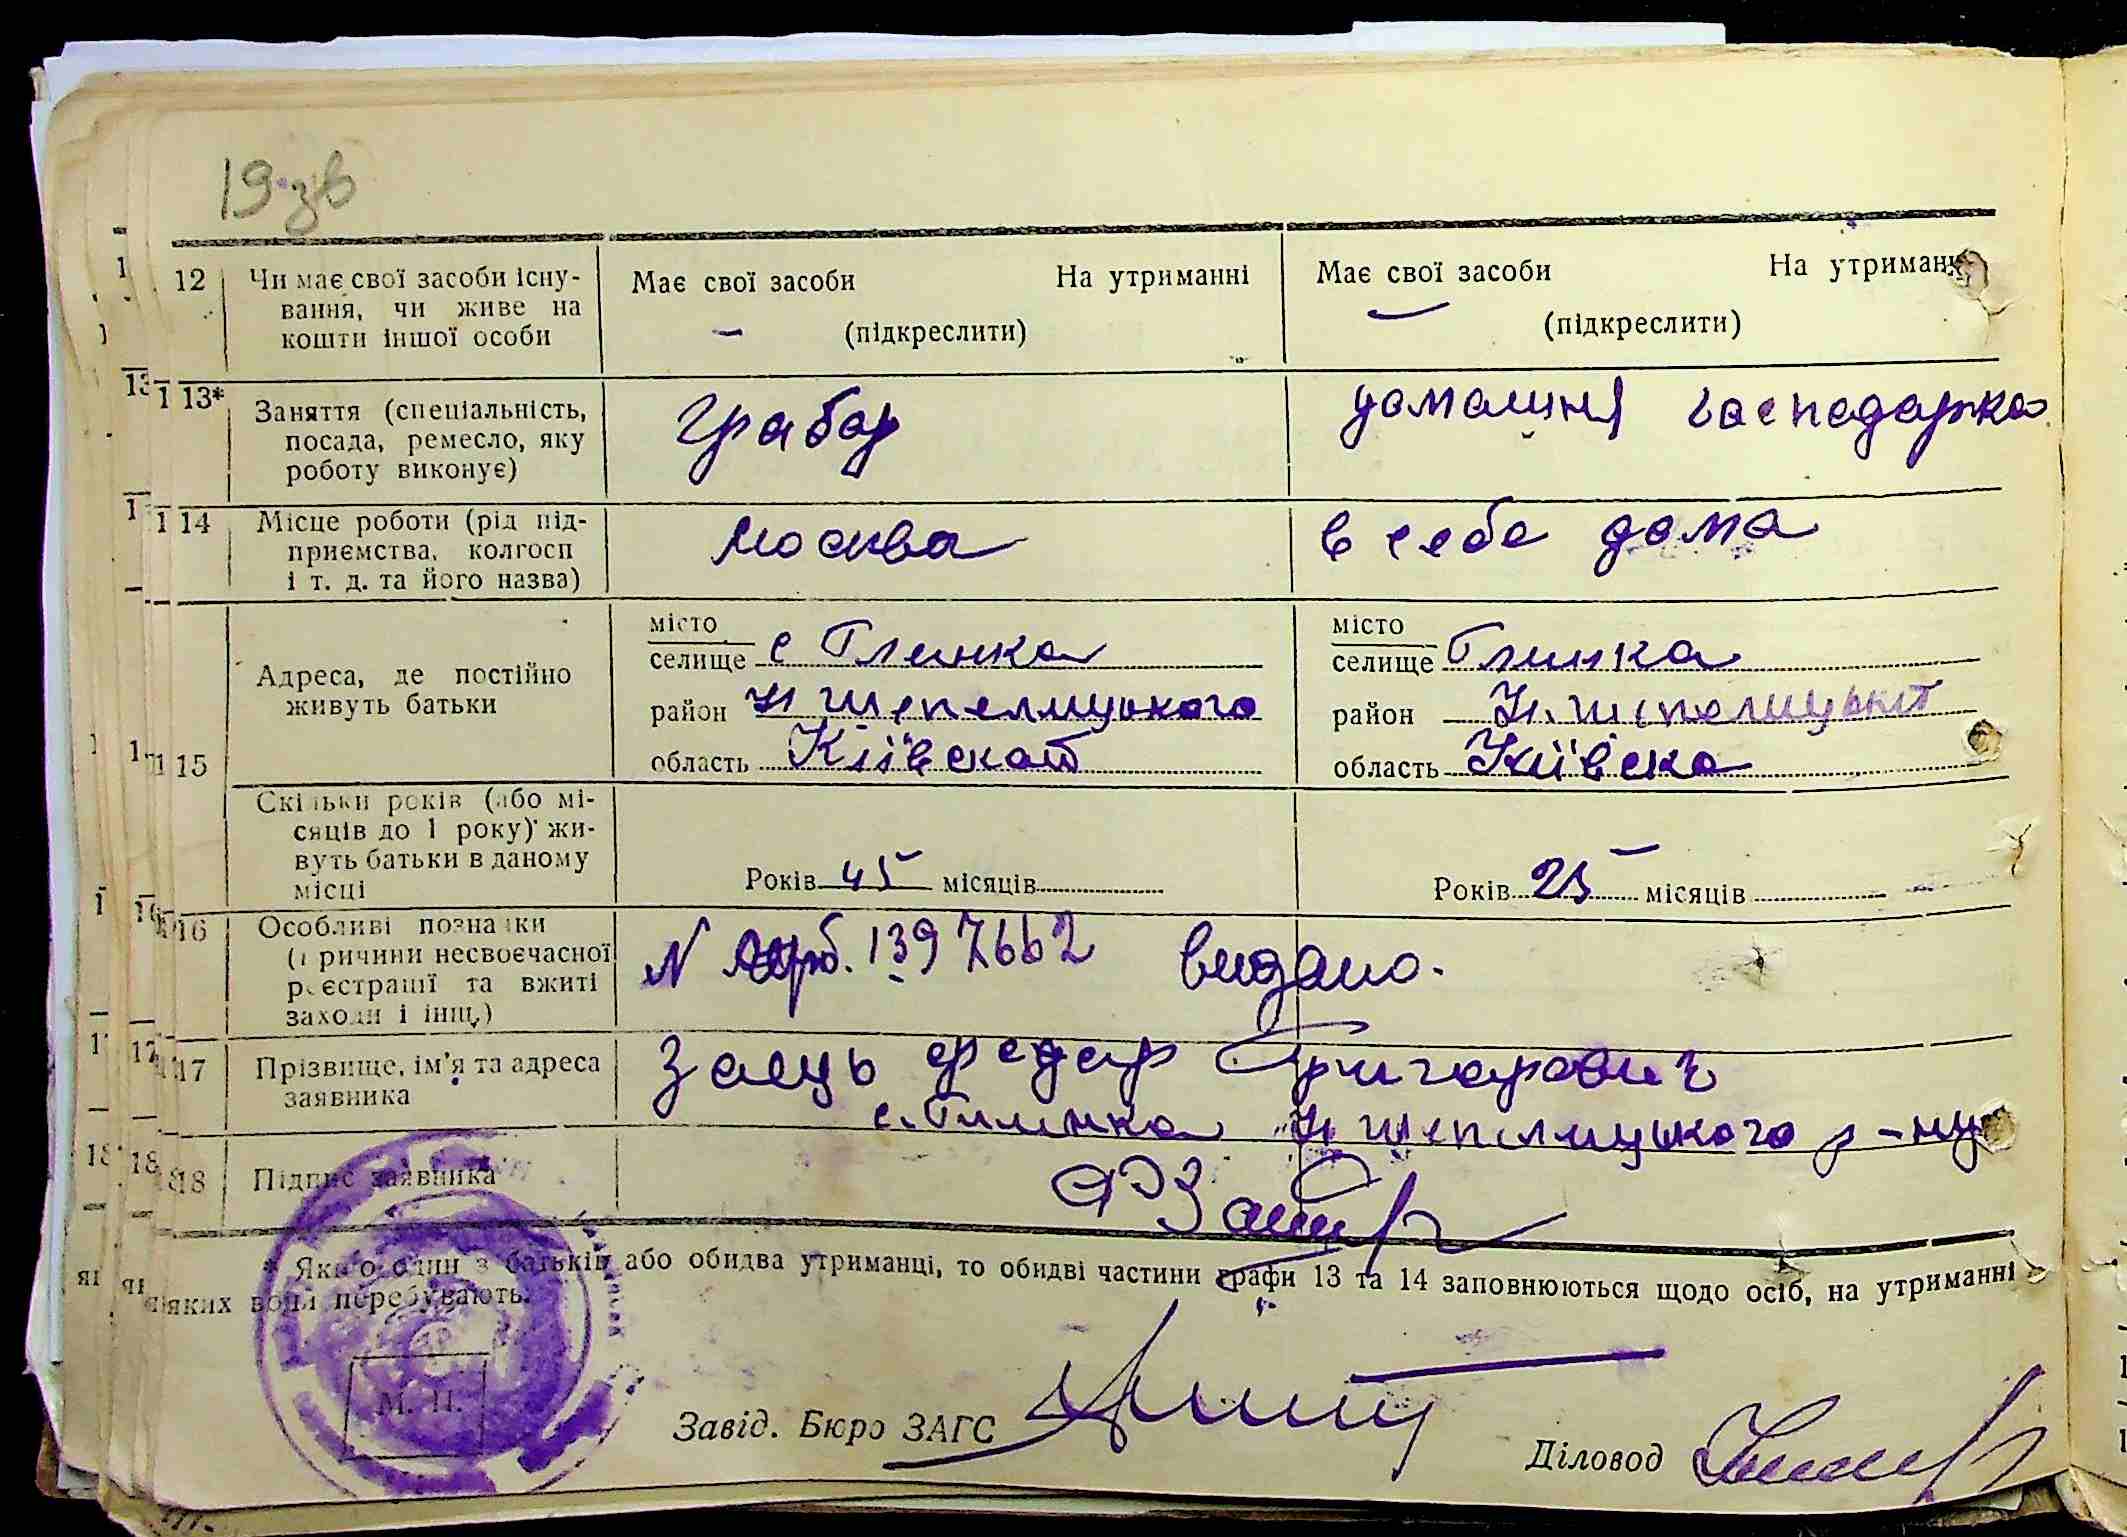 19 зв
12 Чи має свої засоби існу- Має свої засоби На утриманні Має свої засоби На утриман
вання, чи живе на
кошти іншої особи — (підкреслити) — (підкреслити)
13* Заняття (спеціальність, грабар домашня господарка
посада, ремесло, яку
роботу виконує)
14 Місце роботи (рід під- Москва в себе дома
приємства, колгосп
і т. д. та його назва)
15 Адреса, де постійно
живуть батьки
місто місто
селище с Глинка селище Глинка
район Н шепелицького район Н. шепелицький
область Київской область Київска
Скільки років (або мі-
сяців до 1 року) жи-
вуть батьки в даному
місці Років 45 місяців Років 25 — місяців
16 Особливі познаки
(причини несвоєчасної N 1397662 видано.
реєстрації та вжиті
заходи і інш.)
17 Прізвище, ім'я та адреса Заєць Федор Григорович
заявника с. Глинка Н шепелицького р-ну
18 Підпис заявника ФЗаяц
* Якщо один з батьків або обидва утриманці, то обидві частини графи 13 та 14 заповнюються щодо осіб, на утриманні
яких вони перебувають.
М. П.
Завід. Бюро ЗАГС
Діловод